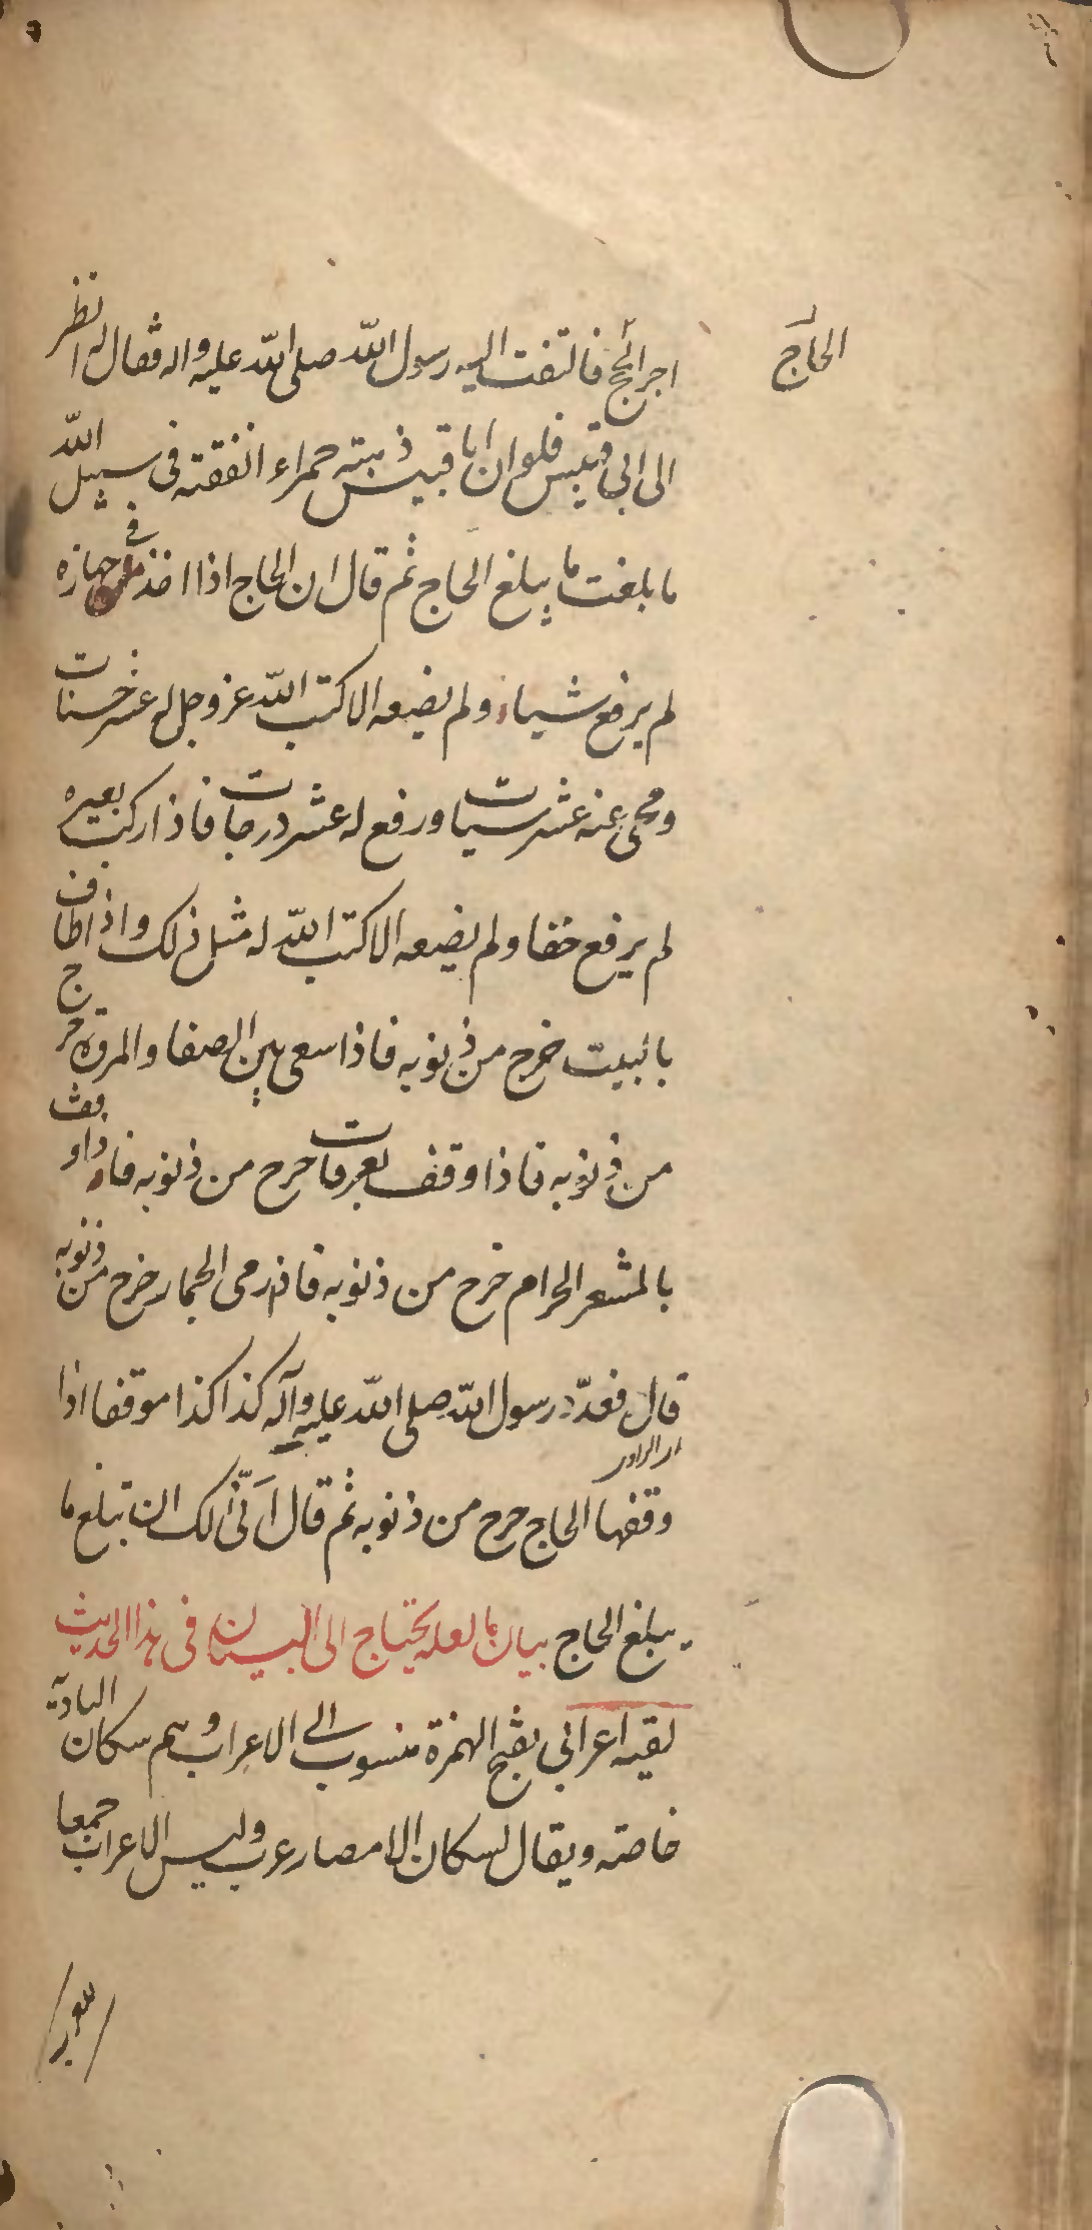 الحاج
اجر الحج فالتفت اليه رسول الله صلى الله عليه واله فقال له انظر
الى ابى قبيس فلو ان ابا قبيس ذهبته حمراء انفقته فى سبيل الله
ما بلغت ما يبلغ الحاج ثم قال ان الحاج اذا اخذ فى جهازه
لم يرفع شيئا ولم يضعه الا كتب الله عز وجل له عشر حسنات
ومحى عنه عشر سيات ورفع له عشر درجات فاذا ركب بعيره
لم يرفع خفا ولم يضعه الا كتب الله له مثل ذلك واذا طاف
بالبيت خرج من ذنوبه فاذا سعى بين الصفا والمروة خرج
من ذنوبه فاذا وقف بعرفات خرج من ذنوبه فاذا وقف
بالمشعر الحرام خرج من ذنوبه فاذا رمى الجمار خرج من ذنوبه
قال فعدّد رسول الله صلى الله عليه وآله كذا كذا موقفا اذا
وقفها الحاج خرج من ذنوبه ثم قال اَنّى لك ان تبلغ ما
يبلغ الحاج بيان ما لعله يحتاج الى البيان فى هذا الحديث
لقيه اعرابي بفتح الهمزة منسوب الى الاعراب وهم سكان البادية
خاصة ويقال لسكان الامصار عرب وليس الاعراب جمعا